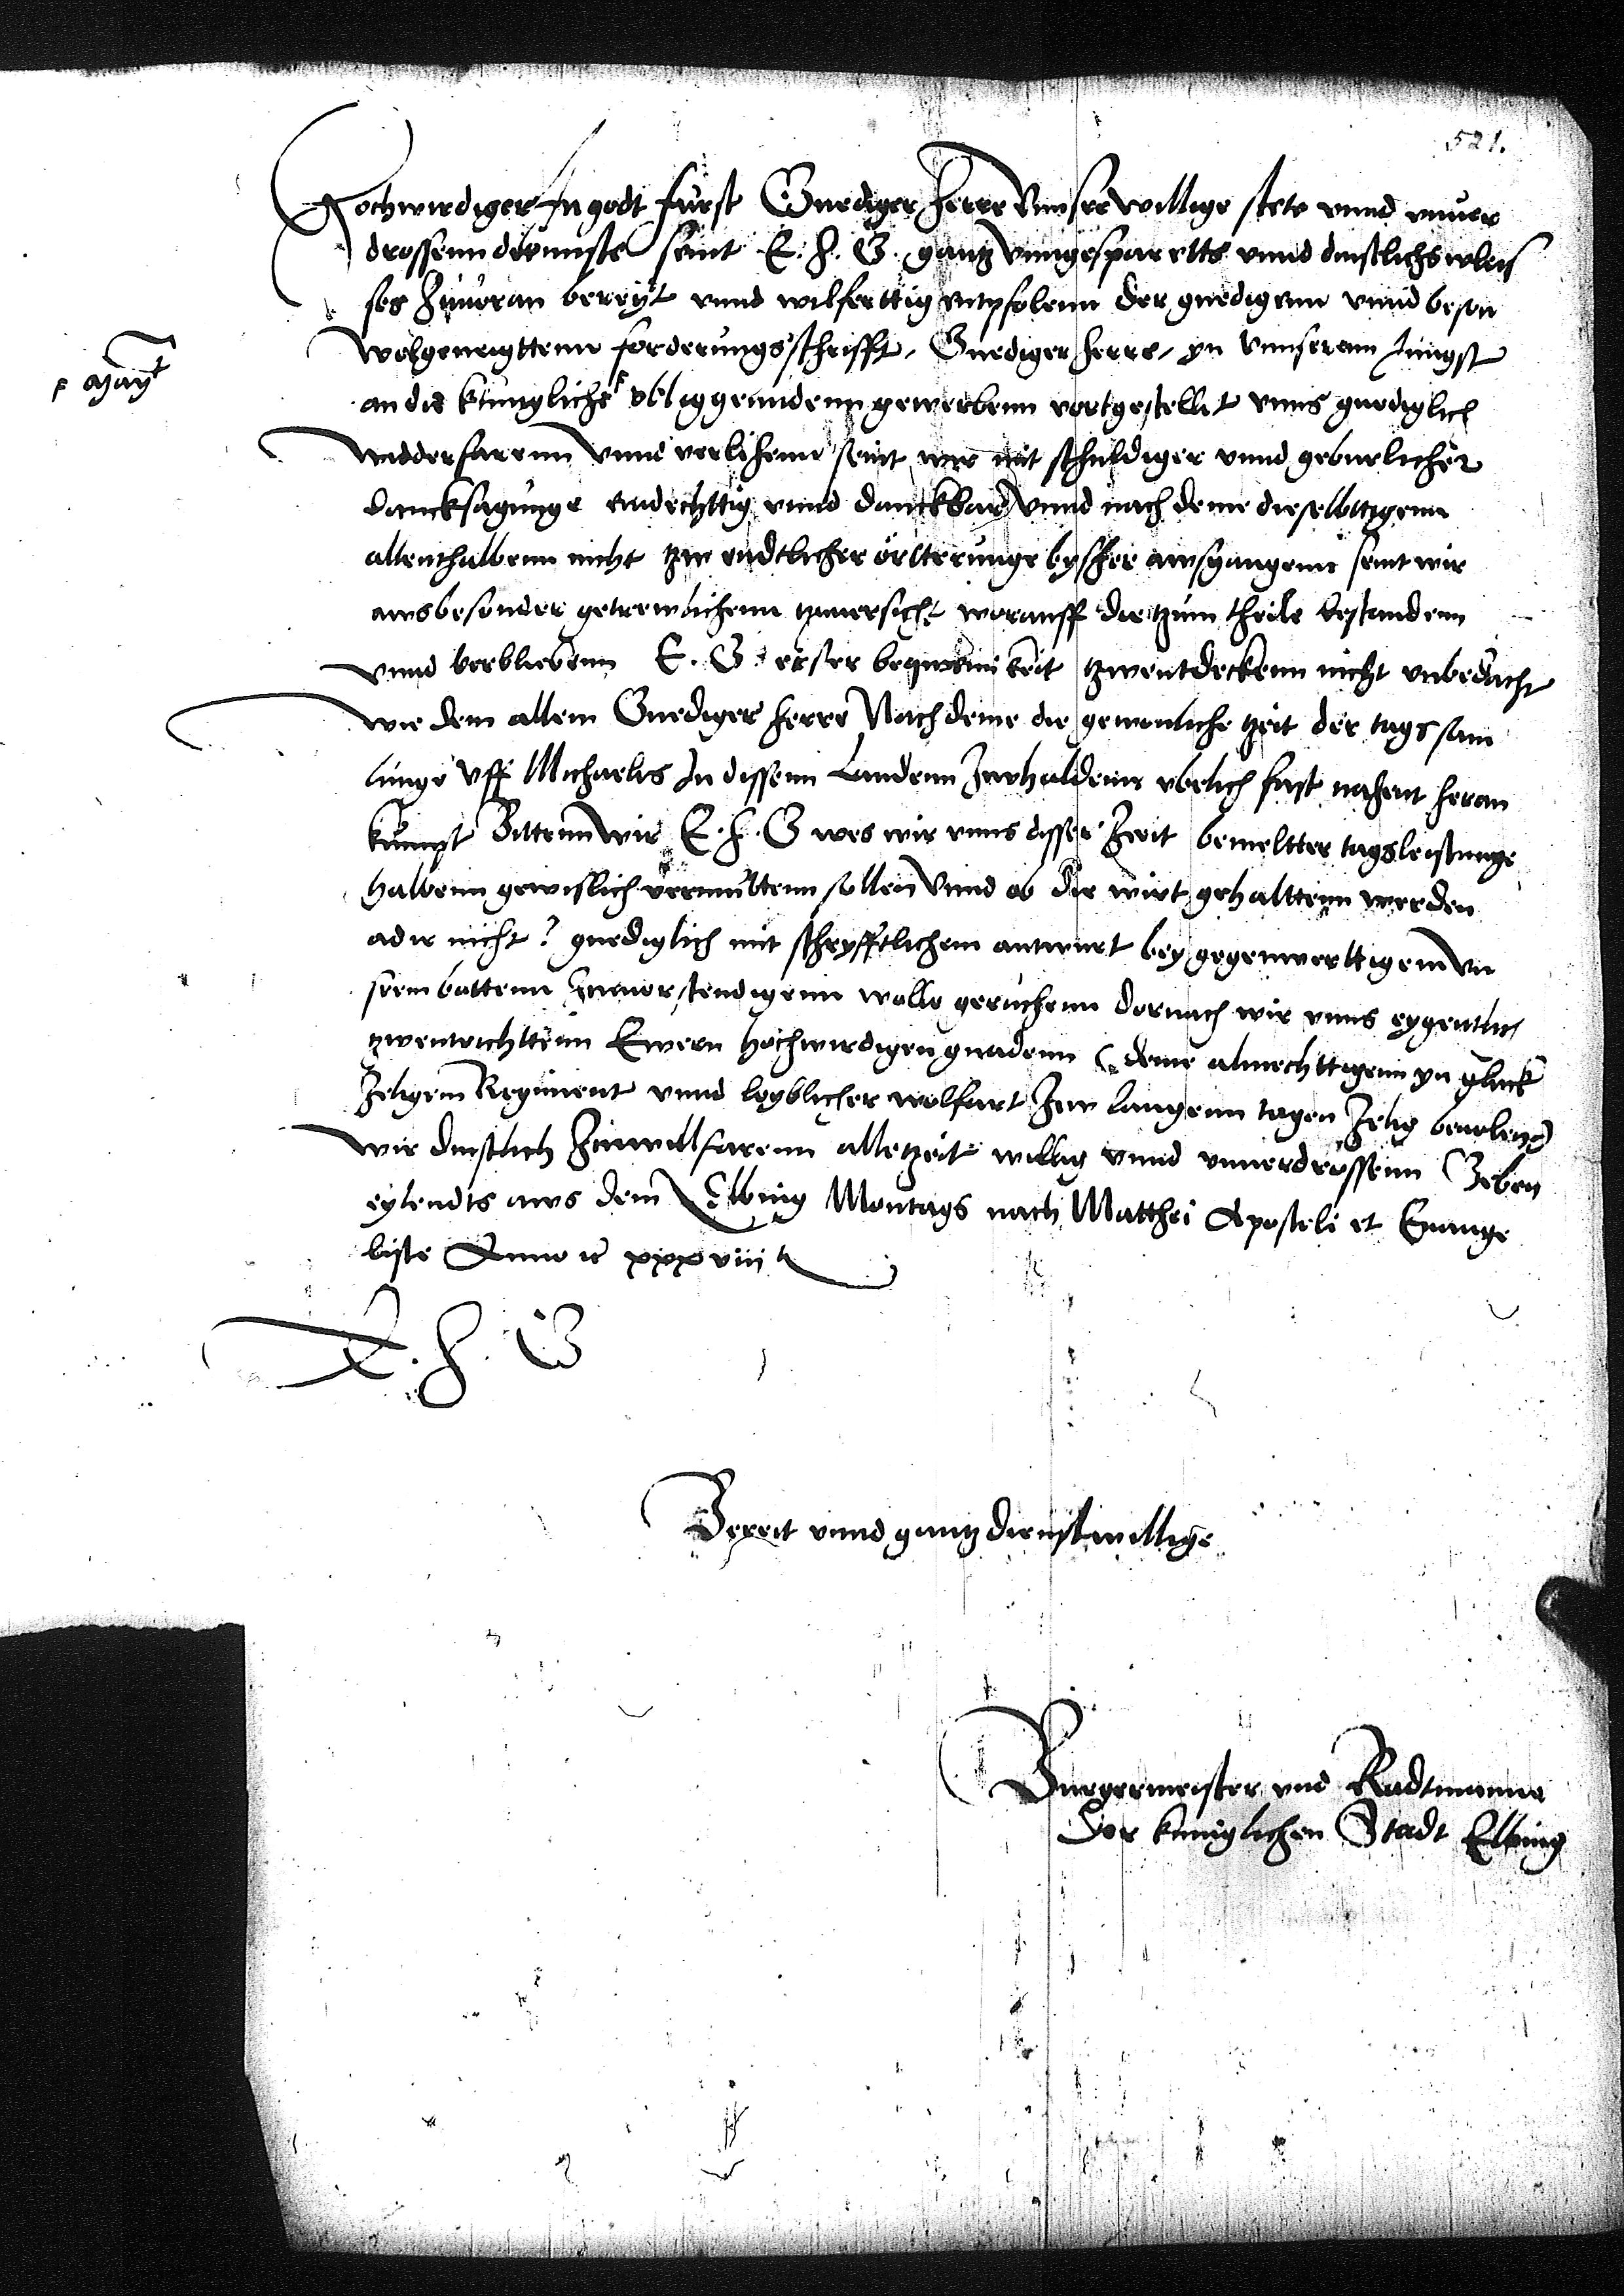 521.
Hochwirdiger In godt furst Gnediger herre Vnnser willige stete vnnd vnuer
drossenn dinnste seint E. h. G. gantz vnngesparetts vnnd dinstlichs vleis
ses Zuuoran bereyt vnnd wilferttig entpfolenn der gnedigenn vnnd beson
wolgeneigttenn forderungs schrifft, Gnediger herre, yn vnnserenn Jungst
Mayt
an die kunngliche obliggenndenn gewerbenn vortgestellet vnns gnediglich
widderfarenn vnnd verlihenn seint wir mit schuldiger vnnd geburlicher
dancksagunge endechttig vnnd danckbar vnnd nach deme dieselbttigenn
allenthalbenn nicht tzw endtlicher örtterunge byshher awsgangenn seint wir
aws besonder getrewlichenn tzuuersicht woranff die tzum theile bestandenn
vnnd verbliebenn E. G. erster beqwemikeit tzwentdeckenn nicht vnbedacht
wie dem allem Gnediger herre Nach deme die gewonliche tzeit der tagssam
lunge vff Michaelis In dissenn Landenn Zwhaldenn ebelich fast nahent heran
kumpt Bittenn wir E. h. G wes wir vnns disser Zeit bemeltter tagsleistunge
halbenn gewisslich vermuttenn sollen vnnd ab die wirt gehalttenn werden
ader nicht? gnediglich mit schryfftlichem antwurt bey gegenwerttigem vn
serm bottenn Zwuorstendigenn wolle geruchenn dornach wir vnns eygentlich
tzwenrichttenn Ewern hochwirdigen gnadenn deme almechttigenn yn gluck
Zeligem Regiment vnnd leyblicher wolfart Zw langenn tagen Zelig beuolen
wir dinstlich Zuwillfarenn alletzeit willig vnnd vnuerdrossenn Geben
eylendts aws dem Elbing Montags nach Matthei Apostoli et Euange
liste Anno etc xxxviii
E. h. G
Bereit vnnd gantz dienstwillige
Burgermeister vnd Radtmanne
Der kuniglichen Stadt Elbing